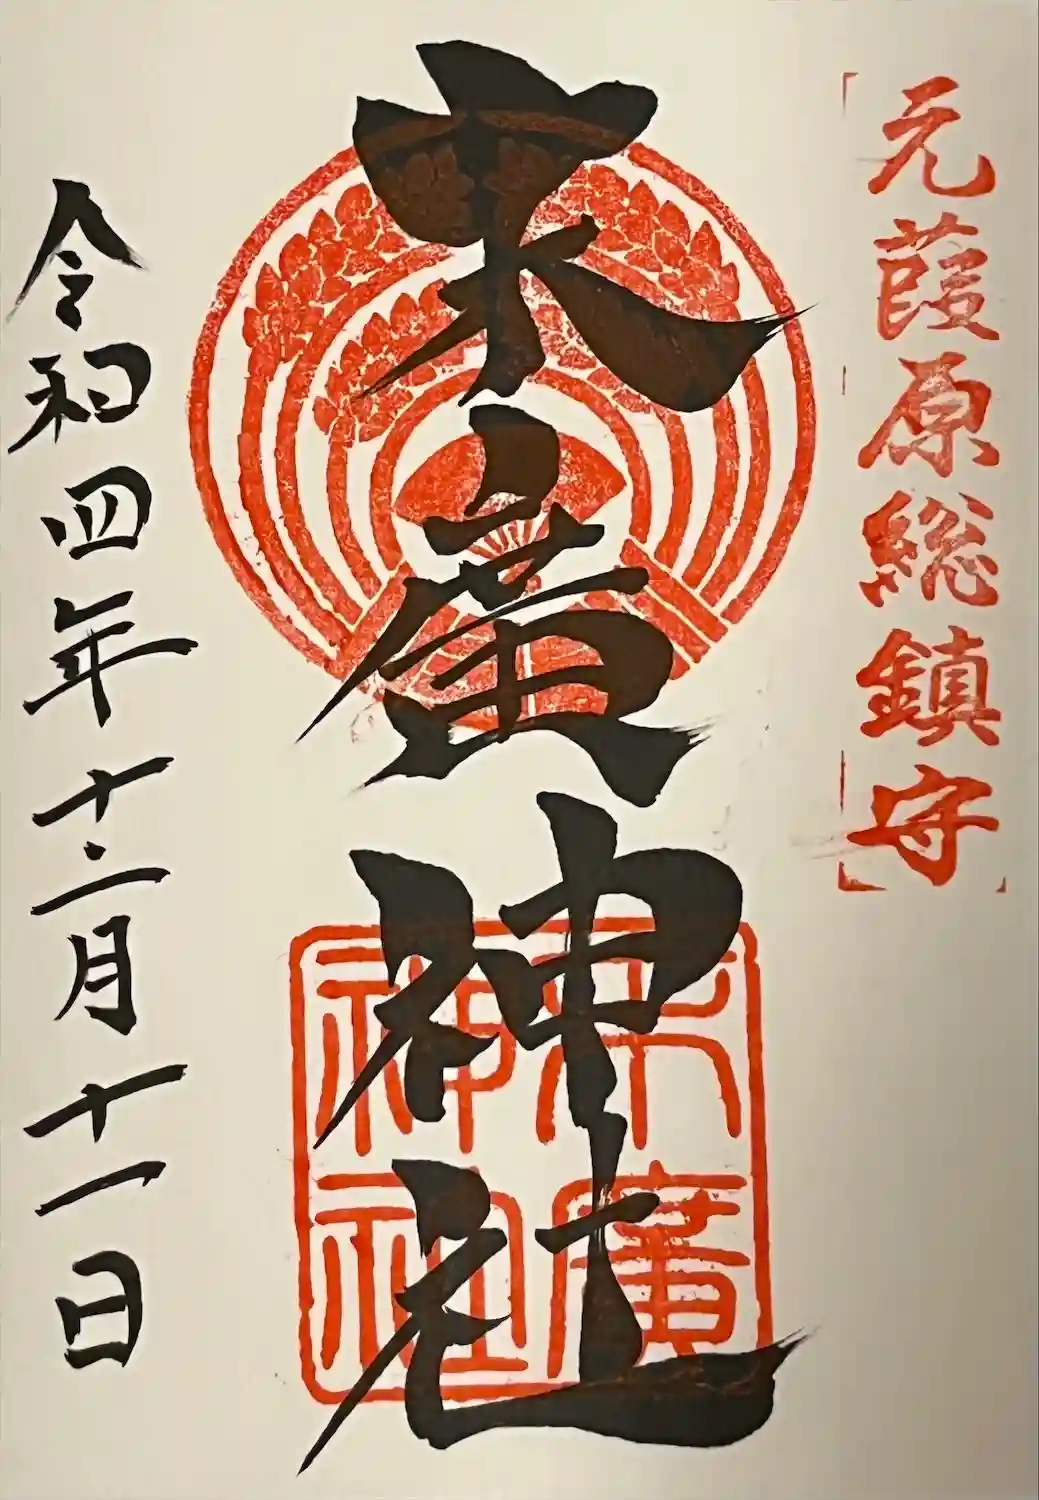 元葭原総鎮守
末廣神社
末廣神社
令和四年十二月十一日